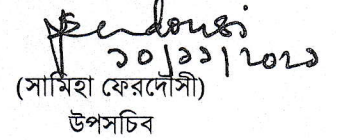 ১০/১১/২০২১
(সামিহা ফেরদৌসী)
উপসচিব